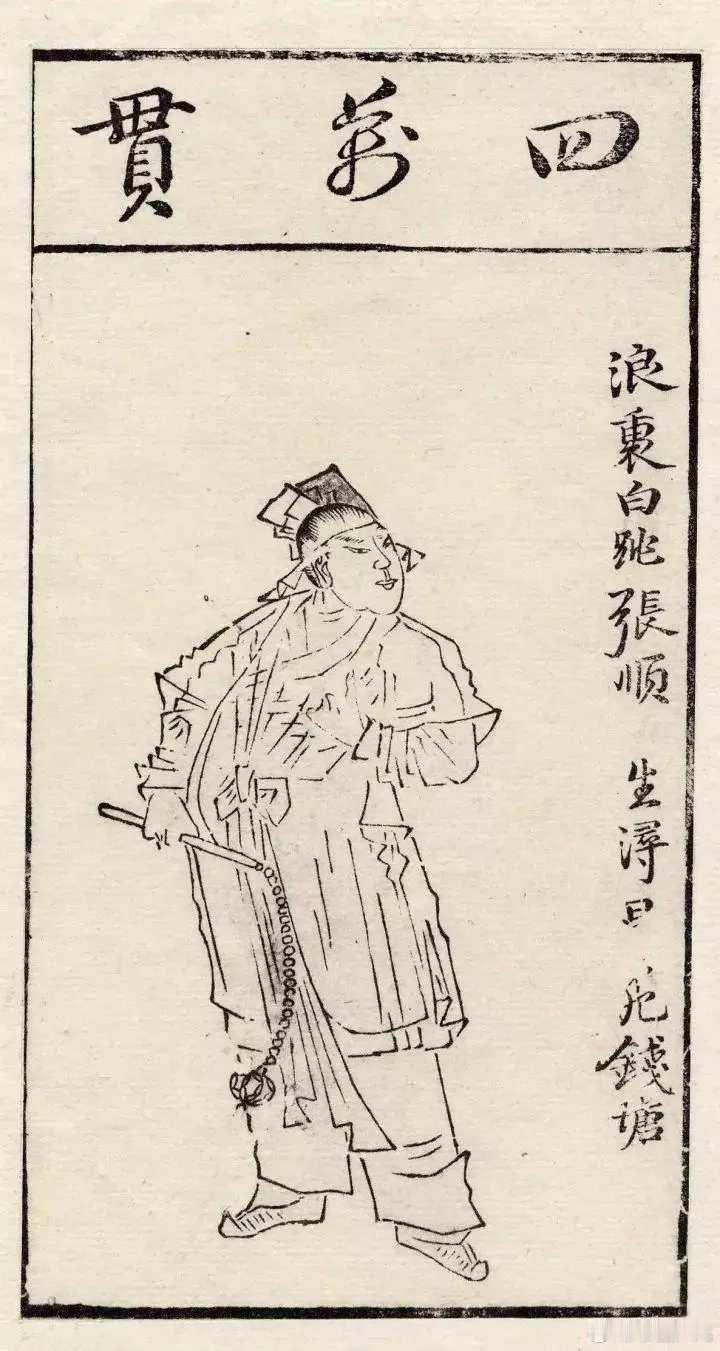 四萬貫
浪裏白跳張順 生潯日 死錢塘